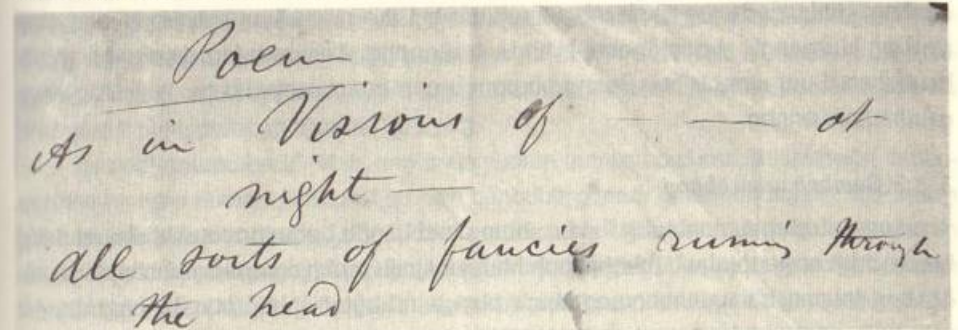 Poem
As in Visions of — — at
night —
All sorts of fancies running through
the head